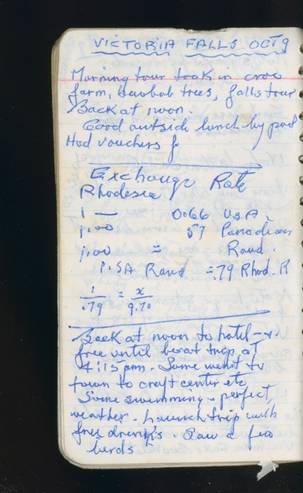 VICTORIA FALLS OCT 9
Morning tour took in croc
farm, baobab trees, falls tour
Back at noon.
Good outside lunch by pool
Had vouchers f
Exchange Rate
Rhodesia
1 — 0.66 U.S.A.
1.00 57
1.00 = Rand.
1. SA Rand = .79 Rhod. R
1/.79 = x/9.70
Back at noon to hotel -
free until boat trip at
4:15 pm. Some went to
town to craft center etc
Some swimming - perfect
weather. Launch trip with
free drinks. Saw a few
birds